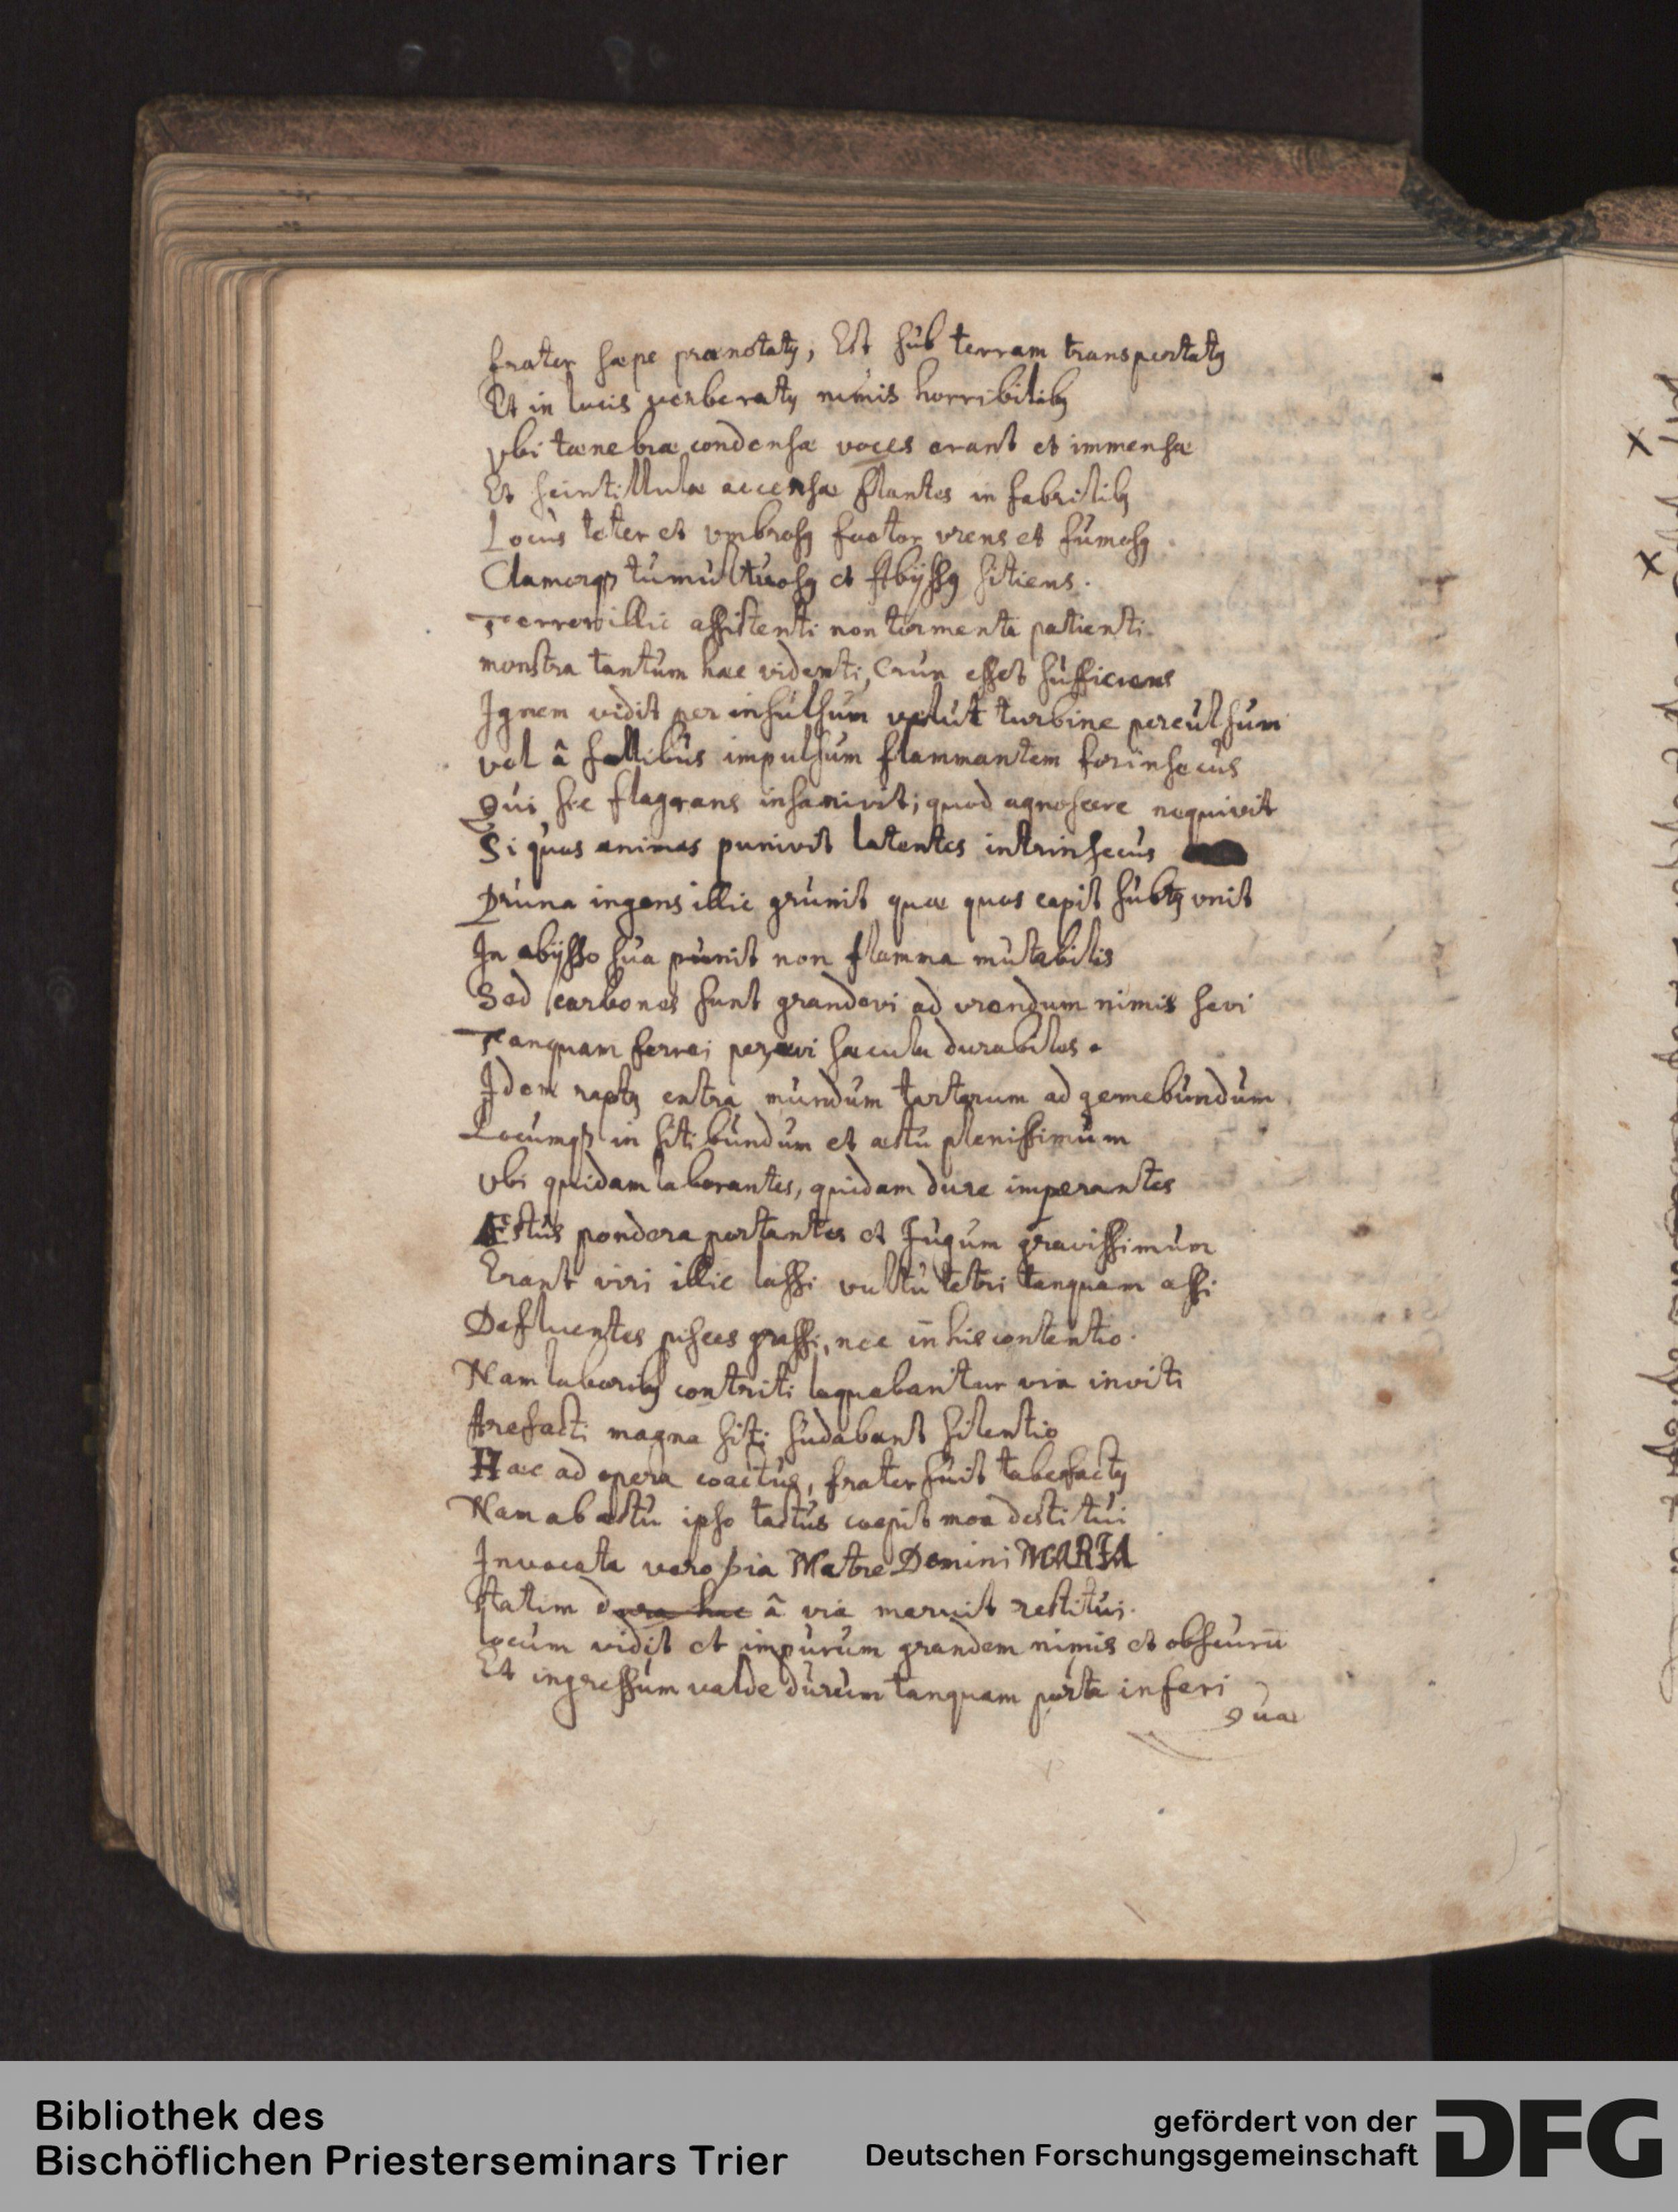 frater sæpe prænotatꝰ, Est sub terram transportatꝰ
Et in lucis verberatꝰ nimis horribilibꝰ
vbi tænebræ condensæ voces erant et immensæ
Et scintillulæ accensæ flantes in fabrilibꝰ
Locus teter et vmbrosꝰ fœtor vrens et fumosꝰ
Clamorqꝫ tumultuosꝰ et Abÿssꝰ sitiens.
Terror illic assistenti non tormenta patienti.
monstra tantum hæc videnti, Crux esset sufficiens
Ignem vidit per insulsum velut turbine perculsum
vel â follibus impulsum flammantem forinsecus
Qui sic flagrans insanivit; quod agnoscere nequivit
Si quas animas punivit latentes intrinsecus
Pruna ingens illic grunit quæ quos capit subtꝰ vnit
In abÿsso sua punit non flamma mutabilis
Sed carbones sunt grandevi ad vrendum nimis sevi
Tanquam ferrei per ævi sæcula durabiles.
Idem raptꝰ extra mundum tartarum ad gemebundum
Locumqꝫ in sitibundum et æstu plenissimum
vbi quidam laborantes, quidam dure imperantes
Æstus pondera portantes et Jugum gravissimum
Erant viri illic lassi vultu tetri tanquam assi
Defluentes pisces grassi, nec in his contentio.
Nam laboribꝰ contriti loquebantur vix inviti
Arefacti magna siti sudabant silentio
Hæc ad opera coactus, frater fuit tabefactꝰ
Nam ab æstu ipso tactus coepit mox destitui
Invocata vero pia Matre Domini MARIA
statim dura hac â via meruit restitui.
locum vidit et impurum grandem nimis et obscurū
Et ingressum valde durum tanquam porta inferi
Quæ
Bibliothek des
Bischöflichen Priesterseminars Trier
gefördert von der
Deutschen Forschungsgemeinschaft
DFG